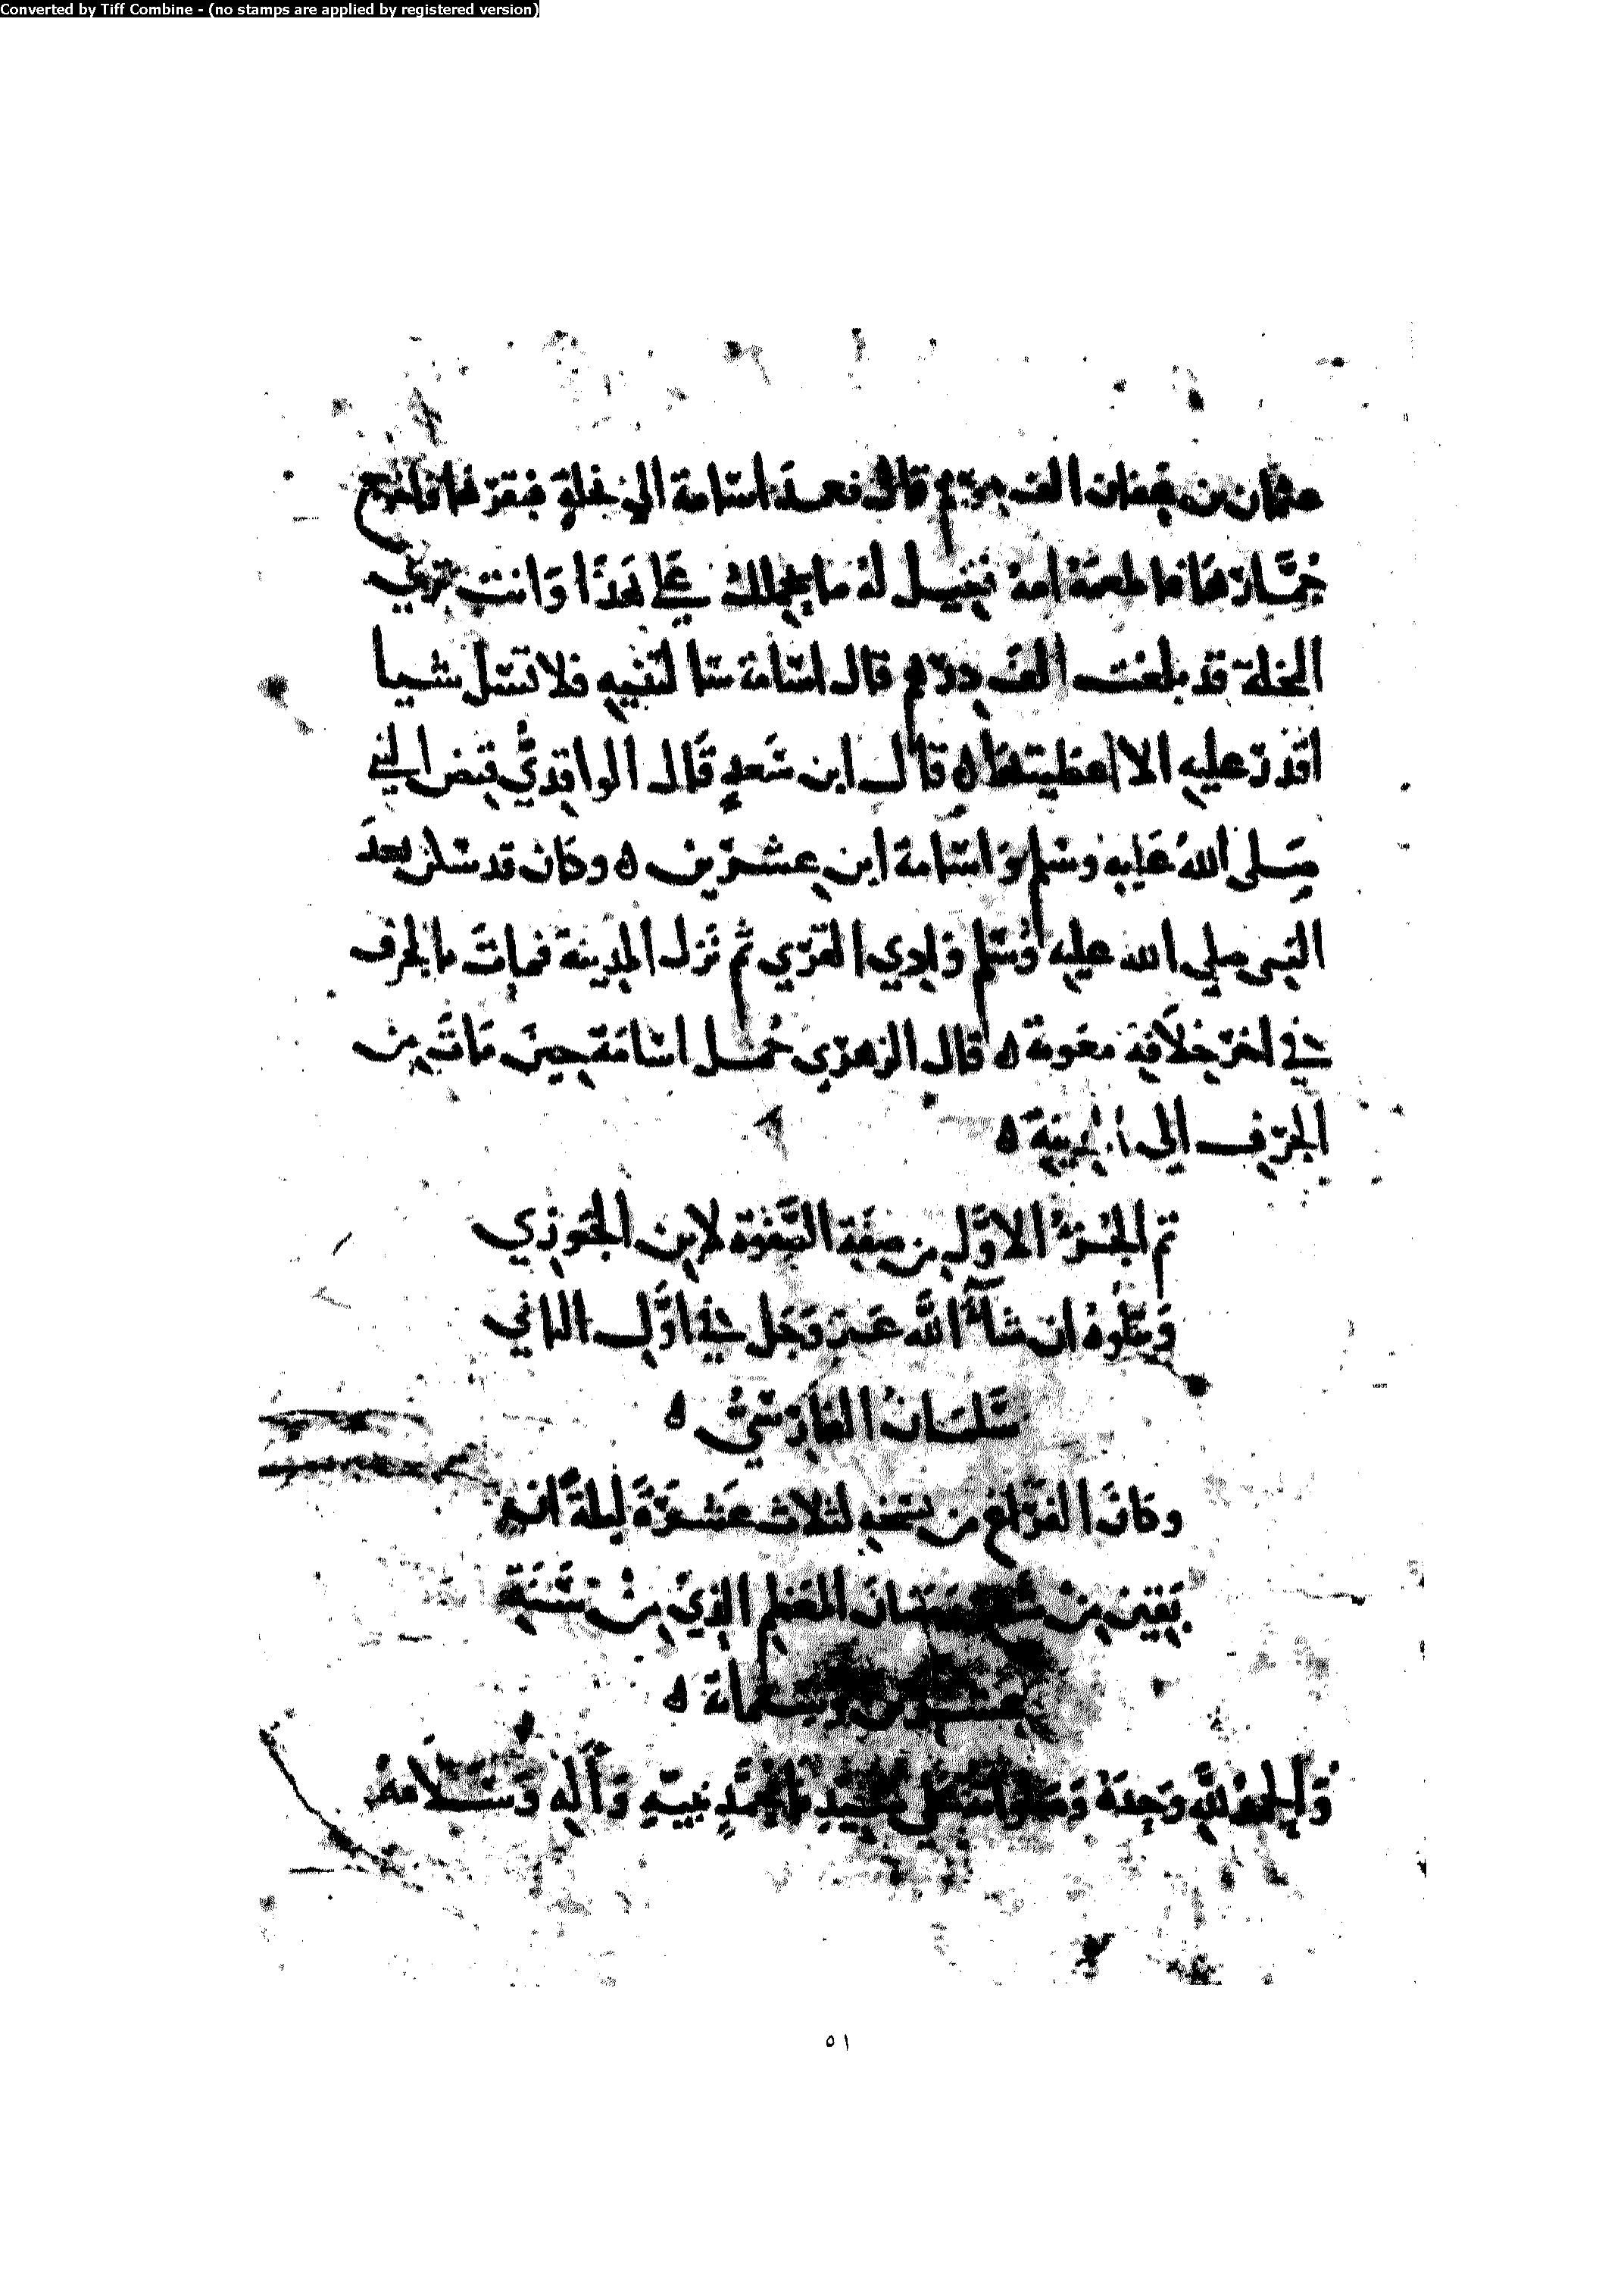 Converted by Tiff Combine - (no stamps are applied by registered version)
عثمان بن عفان الف درهم قال فعمد اسامة الى نخلة فنقرها فاخرج
جمارها فاطعمه امه فقيل له ما يحملك على هذا وانت ترى
النخلة قد بلغت الف درهم قال اسامة سالتنيه فلا تسلني شيا
اقدر عليه الا اعطيتها ه قال ابن سعد قال الواقدي قبض النبي
صلى الله عليه وسلم واسامة ابن عشرين ه وكان قد سكن بعد
النبي صلى الله عليه وسلم وادي القرى ثم نزل المدينة فمات بالجرف
في اخر خلافة معوية ه قال الزهري حمل اسامة حين مات من
الجرف الى المدينة ه
تم الجزء الاول من صفة الصفوة لابن الجوزي
ويتلوه ان شآء الله عز وجل في اول الثاني
سلمان الفارسي ه
وكان الفراغ من نسخه لثلاث عشرة ليلة
بقين من المعظم الذي من سنة
عشرين وستمائة ه
والحمد لله وحده محمد نبيه وآله وسلامه
٥١